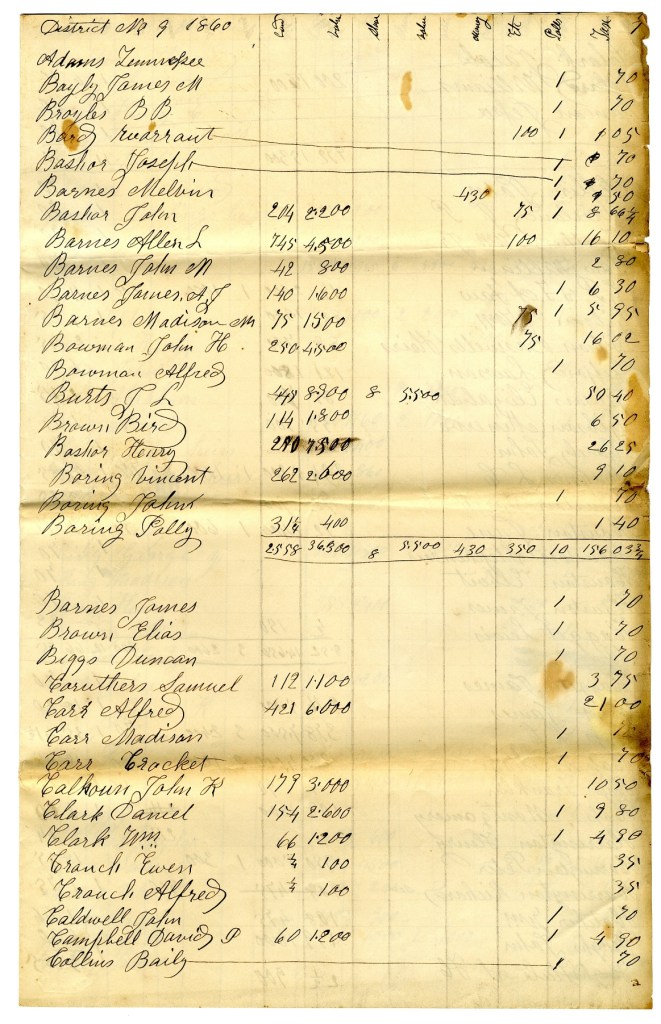 District No 9 1860 Land Value Slaves Value Etc Polls Tax
Adams Tennessee
Bayly James M 1 70
Broyles B B 1 70
Bard Warrant 100 1 1 05
Bashor Joseph 1 70
Barnes Melvin 430 1
Bashor John 204 2.200 75 1 8 66¼
Barnes Allen L 745 4.500 100 16 10
Barnes John M 42 800 2 80
Barnes James, A, J 140 1.600 1 6 30
Barnes Madison M 75 1500 75 1 5 95
Bowman John H. 250 4500 75 16 02
Bowman Alfred 1 70
Burts J L 8.900 8 5.500 50 40
Brown Bird 114 1.800 6 50
Bashor Henry 7500 26 25
Boring Vincent 262 2.600 9 10
Boring John 1 70
Boring Polly 31½ 400 1 40
2558 36.300 8 5.500 430 350 10 156 03¾
Barnes James 1 70
Brown Elias 1 70
Biggs Duncan 1 70
Caruthers Samuel 112 1.100 3 75
Carr Alfred 421 6.000 21 00
Carr Madison 1 70
Carr Crocket 1 70
Calhoun John K 179 3.000 10 50
Clark Daniel 154 2.600 1 9 80
Clark Wm 66 1.200 1 4 90
Crouch Ewen ¼ 100 35
Crouch Alfred ¼ 100 35
Caldwell John 1 70
Campbell David P 60 1.200 1 4 90
Collins Baily 1 70